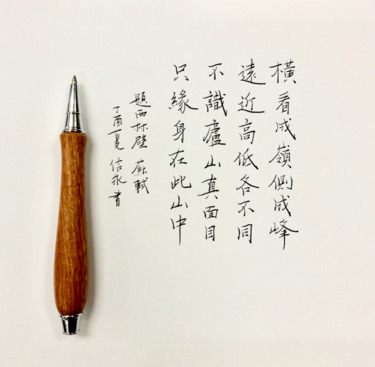 橫看成嶺側成峰
遠近高低各不同
不識廬山真面目
只緣身在此山中
題西林壁 蘇軾
丁酉夏 信永書